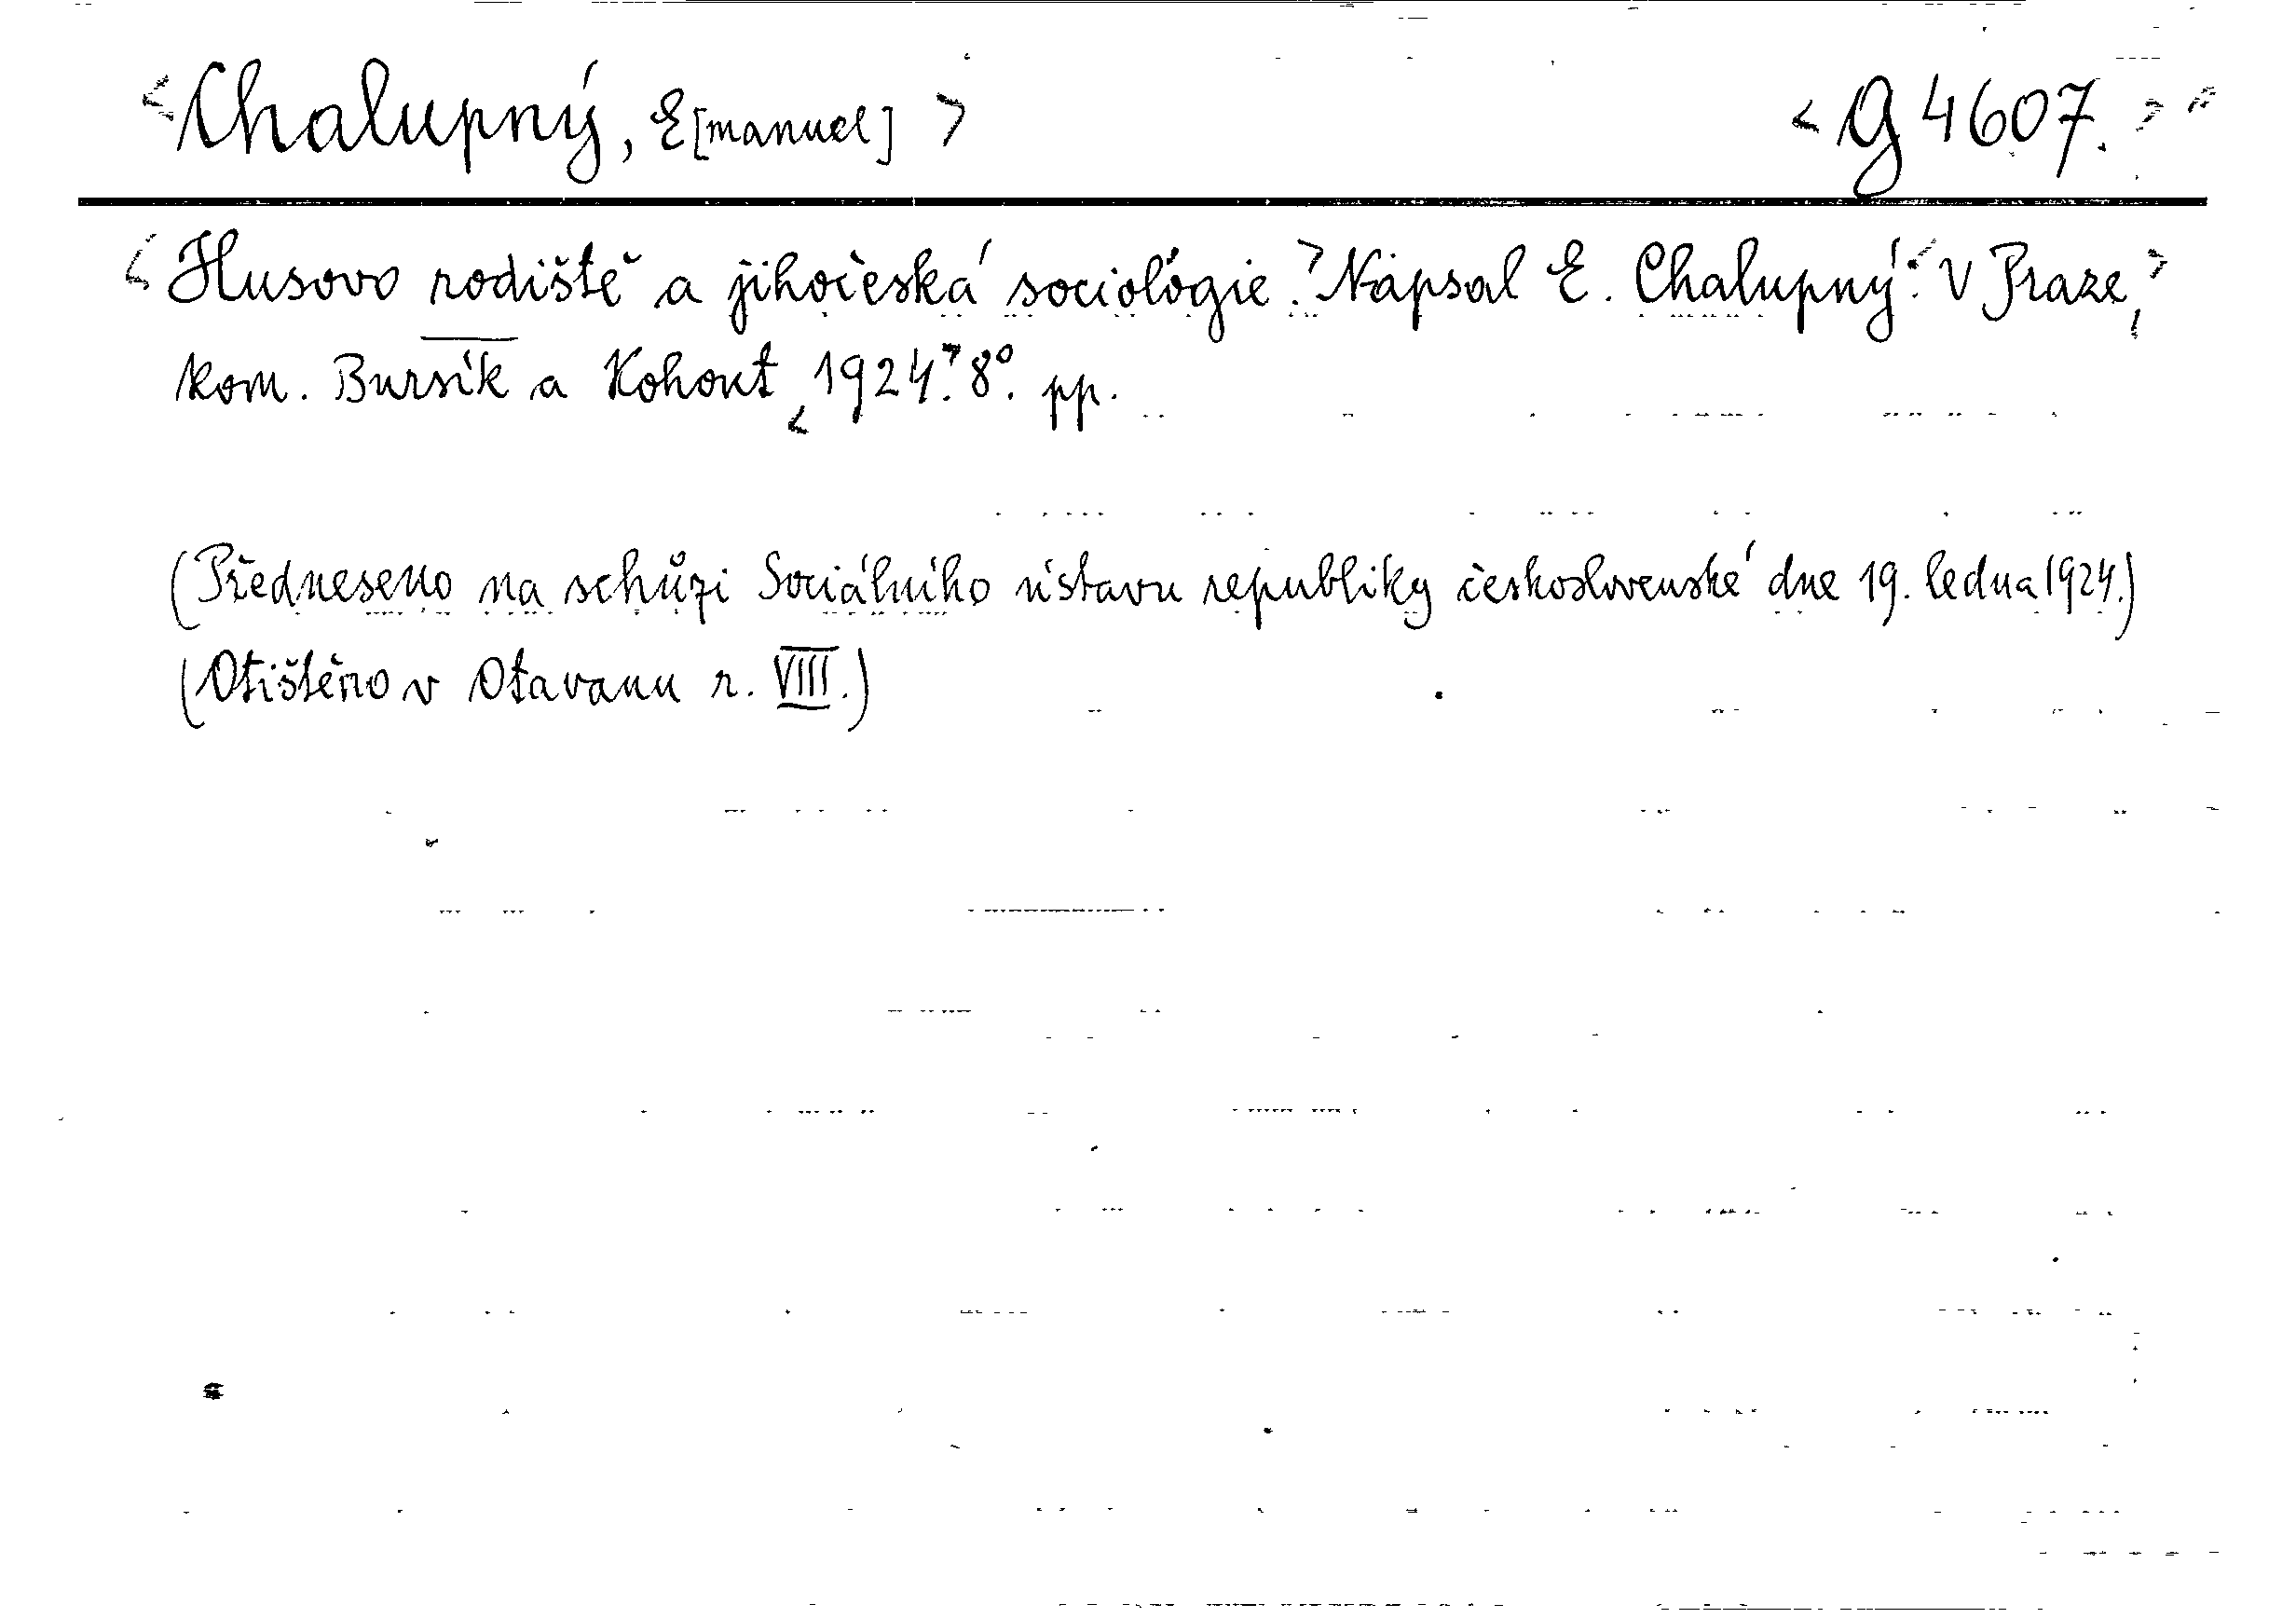 <Chalupný, E[manuel]> <G 4607.>
<Husovo rodiště a jihočeská sociologie.> Napsal E. Chalupný. <V Praze,>
kom. Bursík a Kohout <1924.> 8°. pp.
(Předneseno na schůzi Sociálního ústavu republiky československé dne 19. ledna 1924.)
(Otištěno v Otavanu r. VIII.)